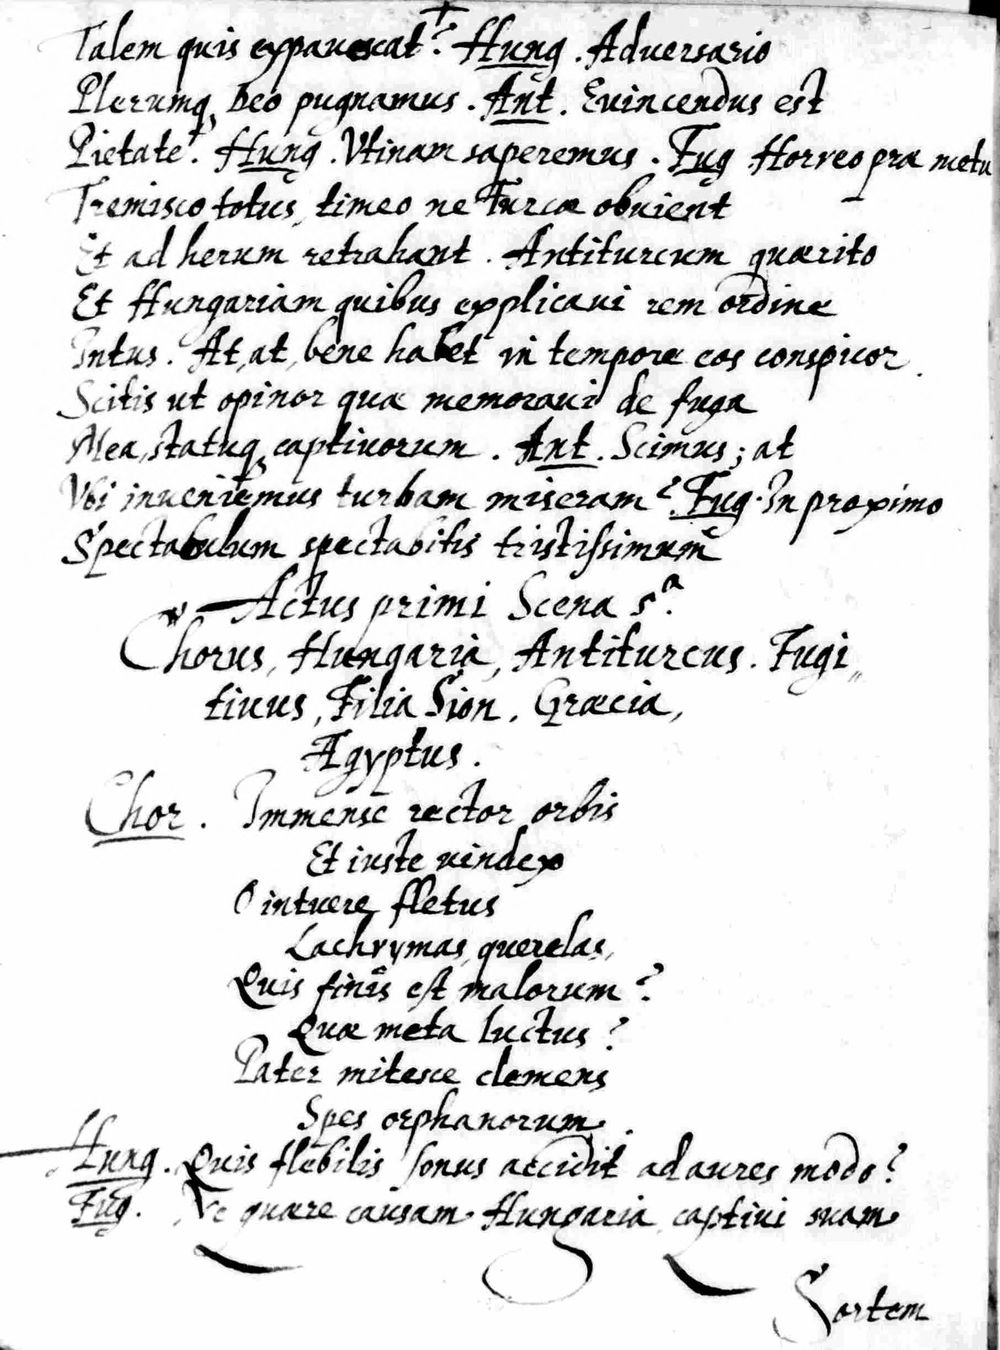 Talem quis expauescat? Hung. Aduersario
Plerumq, Deo pugnamus. Ant. Euincendus est
Pietate. Hung. Vtinam saperemus. Fug Horreo præ metu
Tremisco totus, timeo ne Turcæ obuient
Et ad herum retrahant. Antiturcum quærito
Et Hungariam quibus explicaui rem ordine
Intus. At, at, bene habet in tempore eos conspicor.
Scitis ut opinor quæ memoraui de fuga
Mea, statuq, captiuorum. Ant. Scimus; at
Vbi inueniemus turbam miseram? Fug. In proximo
Spectabulum spectabitis tristissimum
Actus primi Scena 5ª.
Chorus, Hungaria, Antiturcus. Fugi„
tiuus, Filia Sion, Græcia,
Ægyptus.
Chor. Immense rector orbis
Et iuste uindex
O intuere fletus
Lachrymas, querelas,
Quis finis est malorum?
Quæ meta luctus?
Pater mitesce clemens
Spes orphanorum.
Hung. Quis flebilis sonus accidit ad aures modo?
Fug. Ne quære causam Hungaria, captiui suam
Sortem